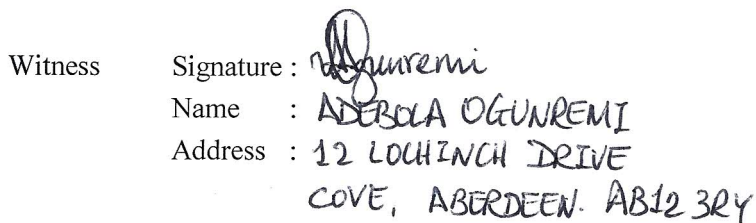 Witness Signature : AOgunremi
Name : ADEBOLA OGUNREMI
Address : 12 LOCHINCH DRIVE
COVE, ABERDEEN. AB12 3RY